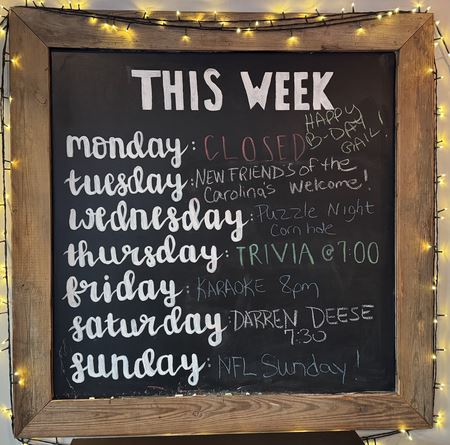 THIS WEEK
HAPPY
B-DAY
GAIL!
monday: CLOSED
tuesday: NEW FRIENDS of the
Carolina's Welcome!
wednesday: Puzzle Night
Cornhole
thursday: TRIVIA @ 7:00
friday: KARAOKE 8pm
saturday: DARREN DEESE
7:30
sunday: NFL Sunday!